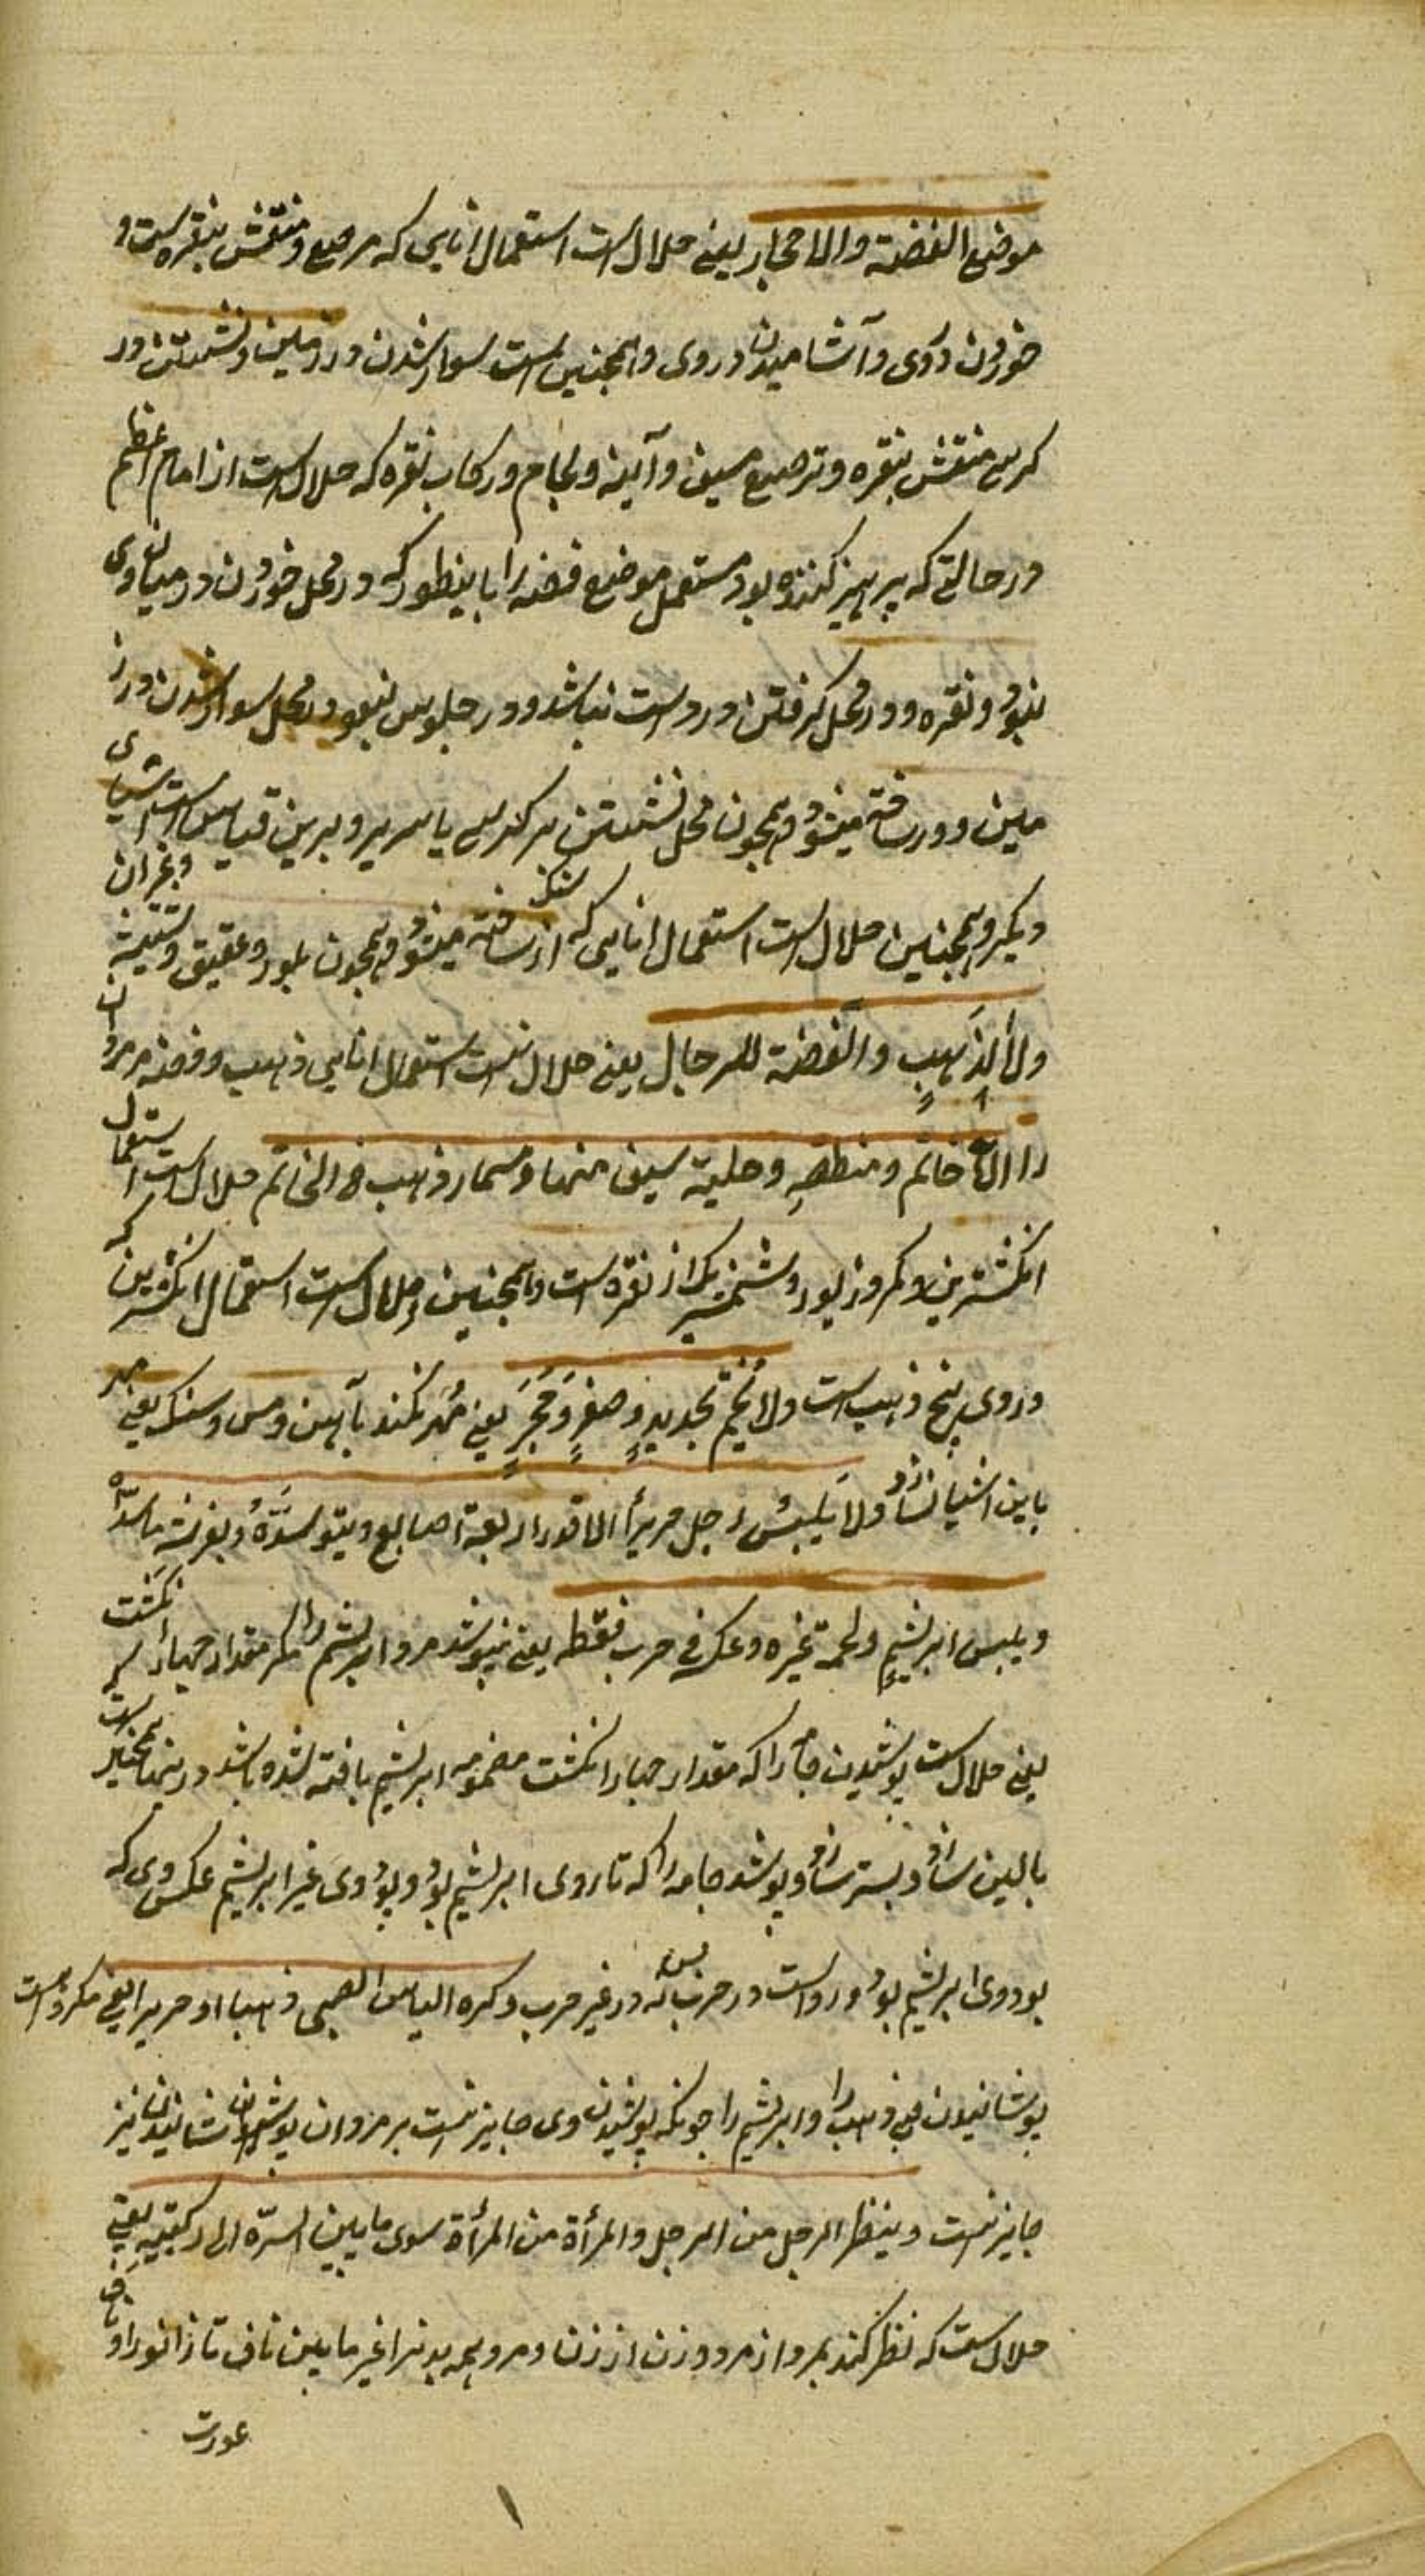 موضع الفضة والاحجار یعنی حلال است استعمال انایی که مرصع و منقش بنقره است و
خوردن در وی و آشامیدن در وی و همچنین است سوار شدن در زین و نشستن در
کرسی منقش بنقره و ترصیع سیف و آینه و لجام و رکاب نقره که حلال است از امام اعظم
در حالتی که پرهیز کننده بود مستعمل موضع فضه را باینطور که در محل خوردن در میان وی
نبود نقره و در محل گرفتن در دست نباشد و در جلوس نبود در محل سوار شدن در ز
مین و در ساخته میشود همچون محل نشستن بر کرسی یا سریر و برین قیاس است اشیای
دیگر و همچنین حلال است استعمال انایی که از سنگ ساخته میشود همچون بلور و عقیق و شیشه و غیر آن
ولا الذَهبِ والفضة للرجال یعنی حلال نیست استعمال انایی ذهب و فضه مر مردان
را الا خاتم ومنطقة وحلية سيف منها ومسمار ذهب فی الخاتم حلال است استعمال
انگشترین و کمر و زیور شمشیر که از نقره است و همچنین حلال است استعمال انگشترین که
در وی میخ ذهب است ولا یختم بحدیدٍ وصفرٍ وحَجَرٍ یعنی مُهر نکند بآهن و مس و سنگ یعنی مهر
باین اشیا نسازد ولا یَلبسُ رجل حریراً الا قدر اربعة اصابع ویتوسَّدَهُ ویفرشه
ویلبس ابریشیمٍ ولحمة غیره وعکسه فی حرب فقط یعنی نپوشد مرد ابریشم را مگر مقدار چهار انگشت
یعنی حلال است پوشیدن جامه را که مقدار چهار انگشت مضمومه ابریشم بافته شده باشد
بالین سازد و بستر سازد و پوشد جامه را که تار وی ابریشم بود و پود وی غیر ابریشم عکس وی که
پود وی ابریشم بود روا است در حرب بس نه در غیر حرب و کره الباس الصبی ذهبا او حریرا یعنی مکروه است
پوشانیدن صبی ذهب را و ابریشم را چونکه پوشیدن وی جایز نیست بر مردان پوشانیدن نیز
جایز نیست وینظر الرجل من الرجل والمرأة من المرأة سوی ما بین السرّة الی رکبتیه یعنی
حلال است که نظر کند مرد از مرد و زن از زن و مرد همه بدنرا غیر ما بین ناف تا زانو را
عورت